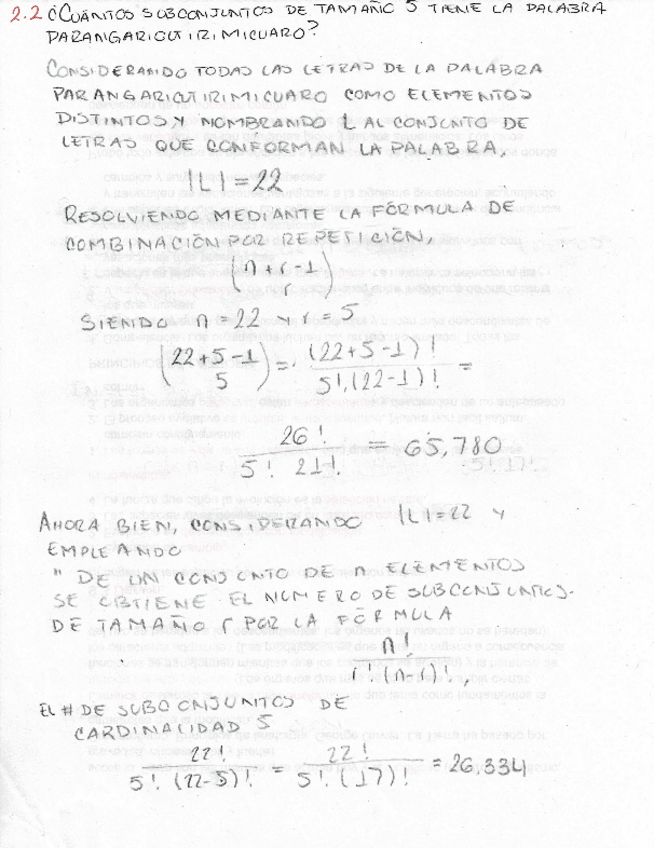 2.2 ¿CUÁNTOS SUBCONJUNTOS DE TAMAÑO 5 TIENE LA PALABRA
PARANGARICUTIRIMICUARO?
CONSIDERANDO TODAS LAS LETRAS DE LA PALABRA
PARANGARICUTIRIMICUARO COMO ELEMENTOS
DISTINTOS Y NOMBRANDO L AL CONJUNTO DE
LETRAS QUE CONFORMAN LA PALABRA,
|L| = 22
RESOLVIENDO MEDIANTE LA FÓRMULA DE
COMBINACIÓN POR REPETICIÓN,
(n+r-1
r)
SIENDO n = 22 y r = 5
(22+5-1
5) = (22+5-1)! / 5!(22-1)! =
26! / 5! 21! = 65,780
AHORA BIEN, CONSIDERANDO |L|=22 Y
EMPLEANDO
" DE UN CONJUNTO DE n ELEMENTOS
SE OBTIENE EL NÚMERO DE SUBCONJUNTOS
DE TAMAÑO r POR LA FÓRMULA
n! / r!(n-r)! ,
EL # DE SUBCONJUNTOS DE
CARDINALIDAD 5
22! / 5!(22-5)! = 22! / 5!(17)! = 26,334